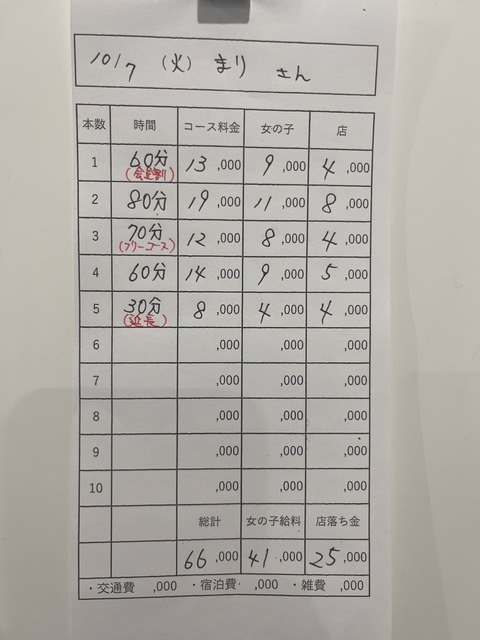 10/7 (火) まり さん
本数 時間 コース料金 女の子 店
1 60分 13,000 9,000 4,000
(会員割)
2 80分 19,000 11,000 8,000
3 70分 12,000 8,000 4,000
(フリーコース)
4 60分 14,000 9,000 5,000
5 30分 8,000 4,000 4,000
(延長)
6 ,000 ,000 ,000
7 ,000 ,000 ,000
8 ,000 ,000 ,000
9 ,000 ,000 ,000
10 ,000 ,000 ,000
総計 女の子給料 店落ち金
66,000 41,000 25,000
・交通費 ,000 ・宿泊費 ,000 ・雑費 ,000